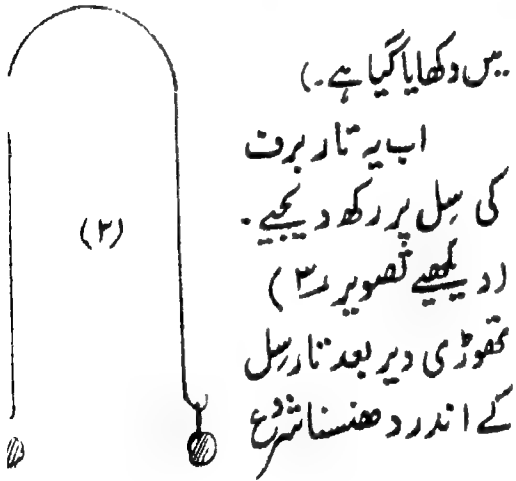 میں دکھایا گیا ہے۔)
اب یہ تار برف
کی سِل پر رکھ دیجیے۔
(دیکھیے تصویر ۳)
تھوڑی دیر بعد تار سِل
کے اندر دھنسنا شروع
(۲)